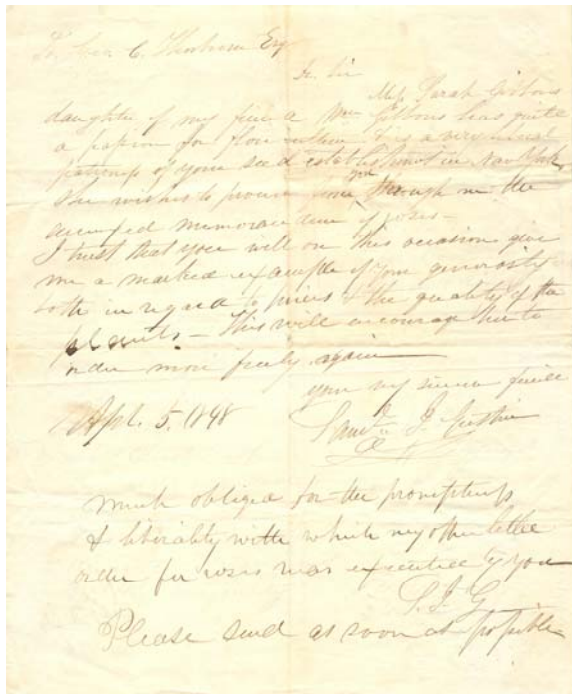 To Geo C. Thorburn Esq
Dr Sir
Miss Sarah Gibbons
daughter of my friend Wm Gibbons has quite
a passion for flori culture & is a very liberal
patroness of your seed establishment in New York
She wishes to procure from you through me the
annexed memorandum of roses –
I trust that you will on this occasion give
me a marked example of your generosity
both in regard to prices & the quality of the
plants. – This will encourage her to
order more freely again
your very sincere friend
Apl. 5. 1848
Saml J.
much obliged for the promptness
& liberality with which my other little
order for roses was executed by you
S. J. G
Please send as soon as possible